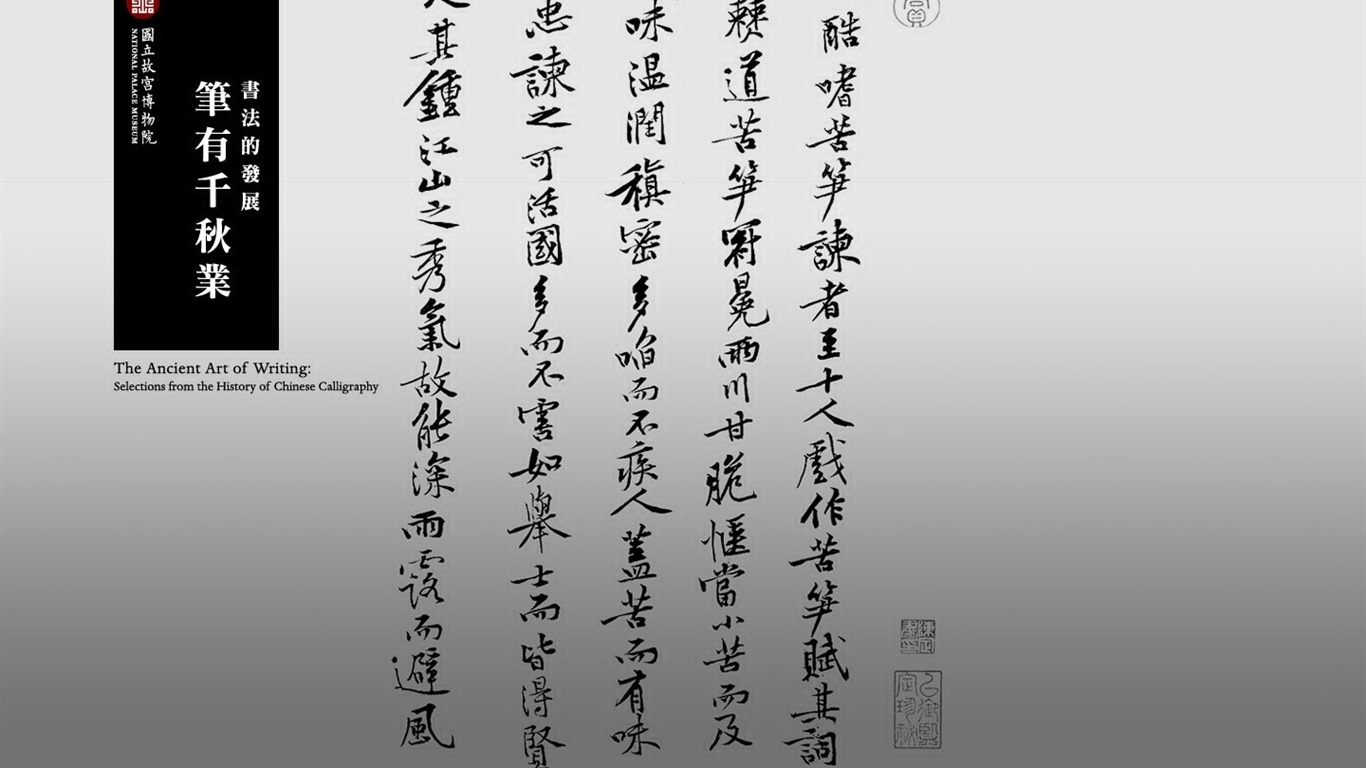 國立故宮博物院
NATIONAL PALACE MUSEUM
書法的發展
筆有千秋業
The Ancient Art of Writing:
Selections from the History of Chinese Calligraphy
酷嗜苦笋諫者至十人戲作苦笋賦其詞
道苦笋冠冕兩川甘脆愜當小苦而及
味温潤縝密多啗而不疾人蓋苦而有味
忠諫之可活國多而不害如舉士而皆得賢
其鍾江山之秀氣故能深雨露而避風